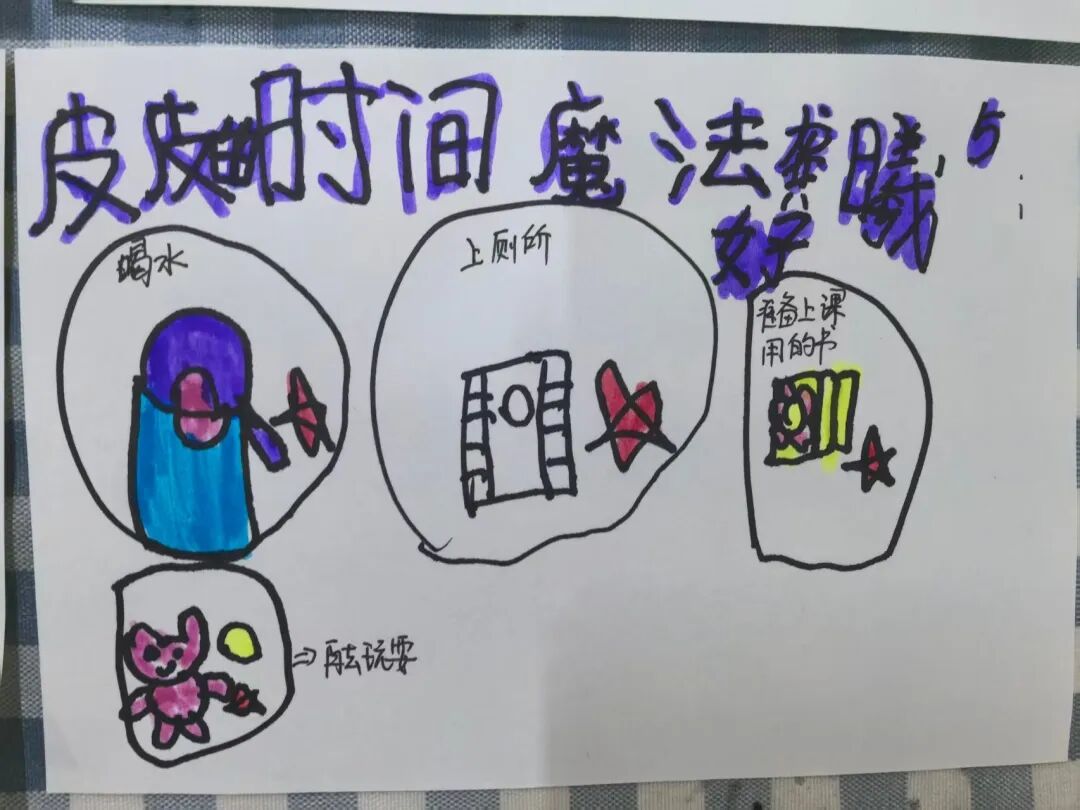 皮皮的时间 魔法 曦 5
好
喝水
上厕所
准备上课
用的书
⇒再去玩耍